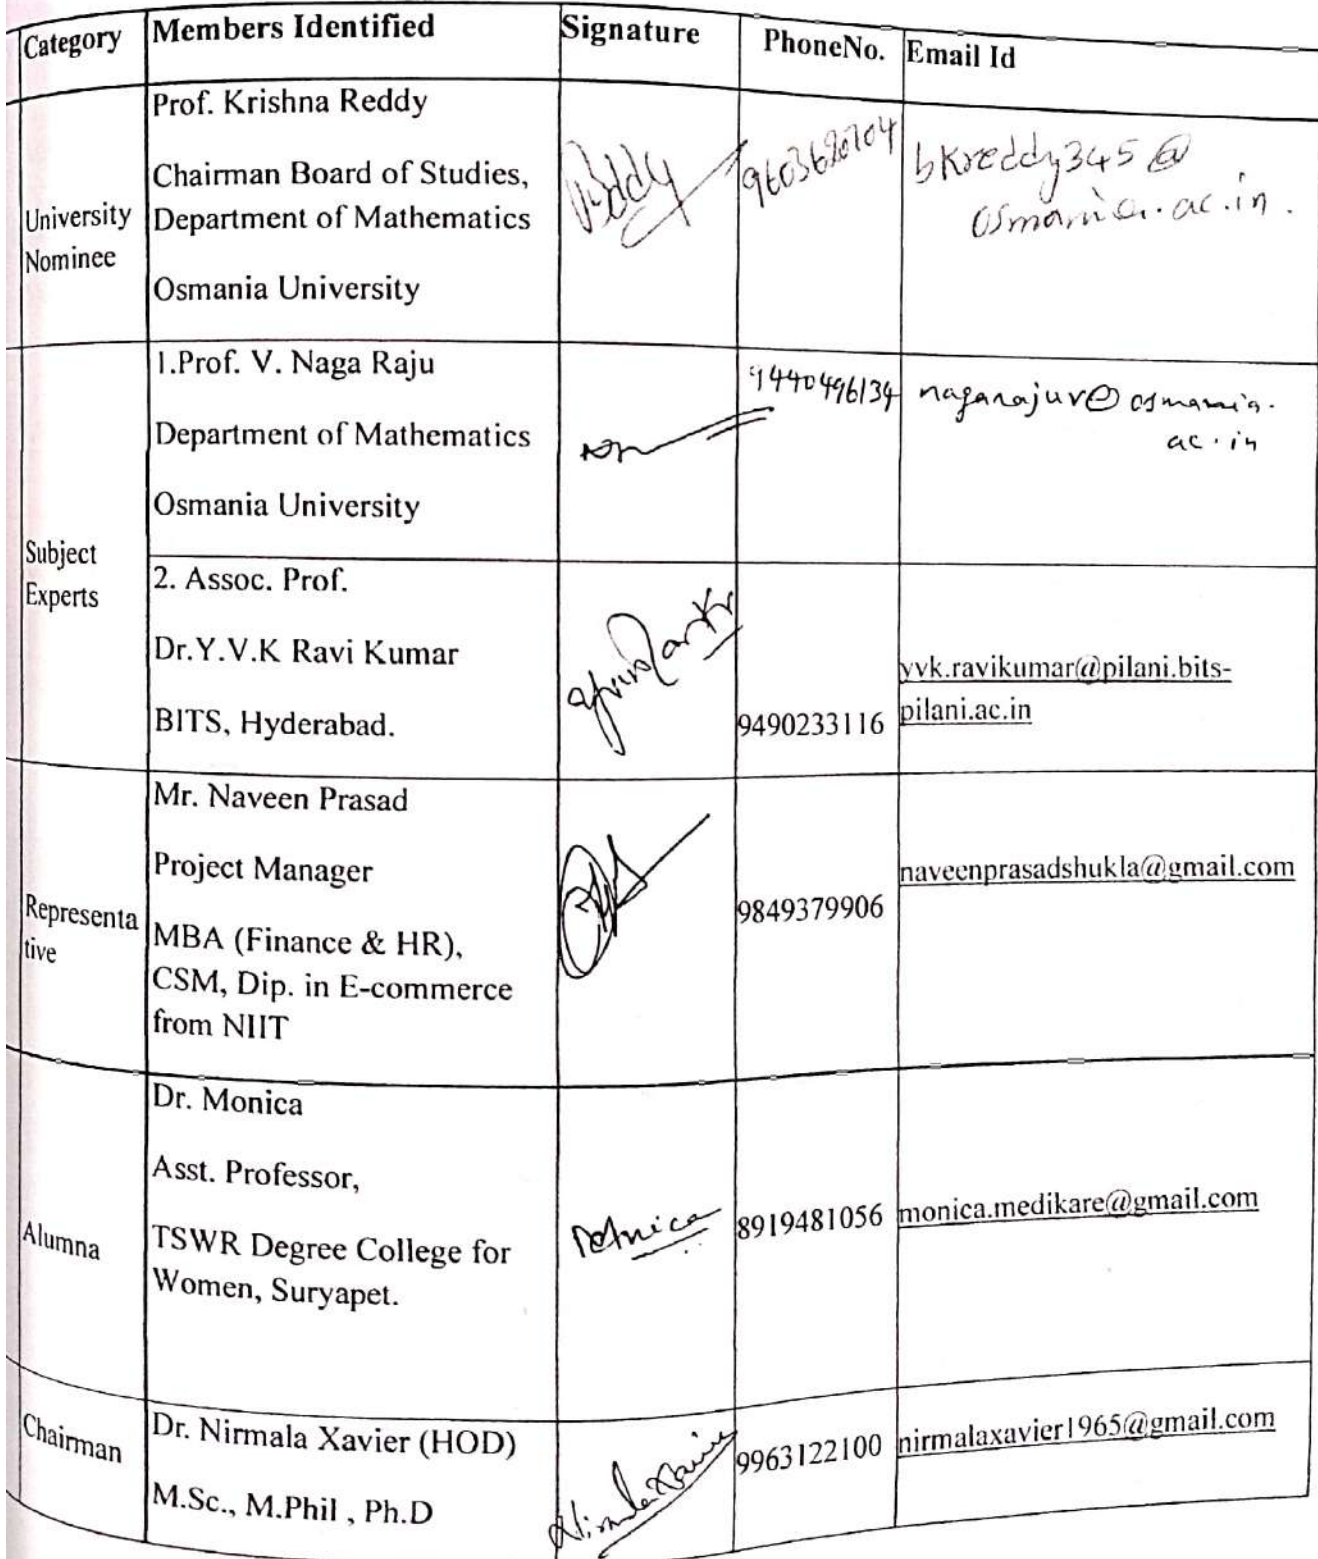 Category Members Identified Signature PhoneNo. Email Id
University
Nominee
Prof. Krishna Reddy
Chairman Board of Studies,
Department of Mathematics
Osmania University
Reddy
bkreddy345@
osmania.ac.in.
Subject
Experts
1.Prof. V. Naga Raju
Department of Mathematics
Osmania University
9440496134
nagarajuv@osmania.
ac.in
2. Assoc. Prof.
Dr.Y.V.K Ravi Kumar
BITS, Hyderabad.
9490233116
yvk.ravikumar@pilani.bits-
pilani.ac.in
Representa
tive
Mr. Naveen Prasad
Project Manager
MBA (Finance & HR),
CSM, Dip. in E-commerce
from NIIT
9849379906
naveenprasadshukla@gmail.com
Alumna
Dr. Monica
Asst. Professor,
TSWR Degree College for
Women, Suryapet.
8919481056
monica.medikare@gmail.com
Chairman
Dr. Nirmala Xavier (HOD)
M.Sc., M.Phil , Ph.D
NirmalaXavier
9963122100
nirmalaxavier1965@gmail.com